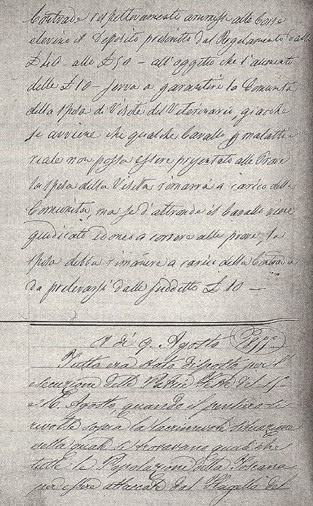 Contrade respettivamente ammesse alle Corse
elevare il Deposito prescritto dal Regolamento dalle
£ 40 alle £ 50 - all'oggetto che l'aumento
delle £ 10 - serva a garantire la Comunità
della spesa di Visite del Veterinario, giacchè
se avviene che qualche cavallo p malattia
reale non possa essere presentato alle Prove
la spesa della Visita rimarrà a carico della
Comunità, ma se d'altronde il Cavallo viene
giudicato idoneo a correre alle prove, la
spesa debba rimanere a carico della Contrada
da prelevarsi dalle suddette £ 10 -
A dì 9. Agosto
Tutto era stato disposto per l'
esecuzione delle
e 16. Agosto, quando il pensiero si
rivolse sopra la situazione
nella quale si trovavano quasi che
tutte le Popolazioni della Toscana
per esser attaccate dal Flagello del